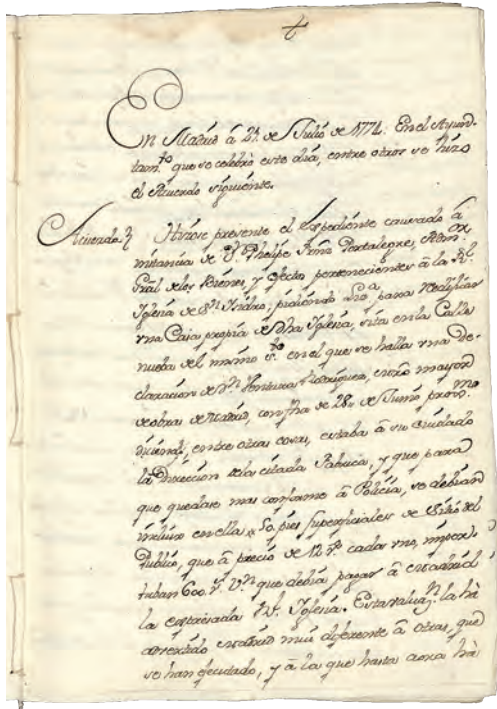 En Madrid â 21 de Julio de 1774. En el Ayun-
tam.to que se celebrò este dia, entre otros se hizo
el Acuerdo siguiente.
Acuerdo. Hizose presente el Expediente causado â
instancia de D.n Phelipe Portalegre, Adm.or
Gral de los Vienes, y efectos pertenecientes â la R.l
Iglesia de S.n Isidro, pidiendo Liz.a para reedificar
vna Casa propia de dha Iglesia, sita en la Calle
nueba del mismo S.to en el que se halla vna de-
claracion de D.n Ventura Rodriguez, mayor
de obras de Madrid, con fha de 28 de Junio prox.mo
diciendo, entre otras cosas, estaba â su cuidado
la direccion de la citada Fabrica, y que para
que quedase mas conforme â Policia, se debian
incluir en ella 50. pies superficiales de Sitio del
Publico, que â precio de 12 r.s cada vno, impor-
taban 600. r.s V.n que debia pagar â Madrid
la expresada R.l Iglesia. Esta valuaz.n la hà
advertido Madrid mui diferente â otras, que
se han efectuado, y â la que hasta aora hà